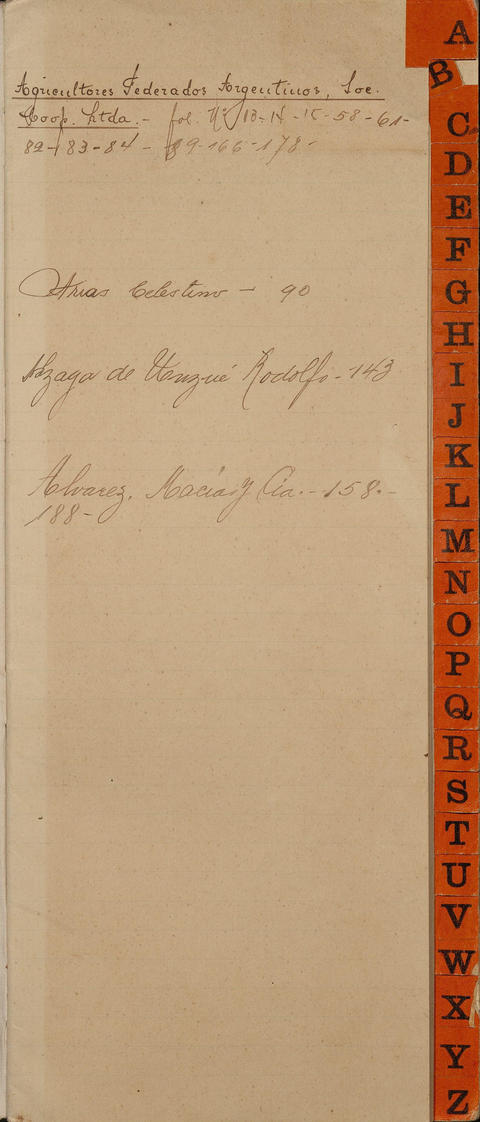 Agricultores Federados Argentinos, Soc.
Coop. Ltda. - fol. Nº 13-14-15-58-61-
82-83-84-89-166-178-
Arias Celestino - 90
Alzaga de Unzué Rodolfo - 143
Alvarez, Macías y Cia. - 158. -
188 -
A
B
C
D
E
F
G
H
I
J
K
L
M
N
O
P
Q
R
S
T
U
V
W
X
Y
Z